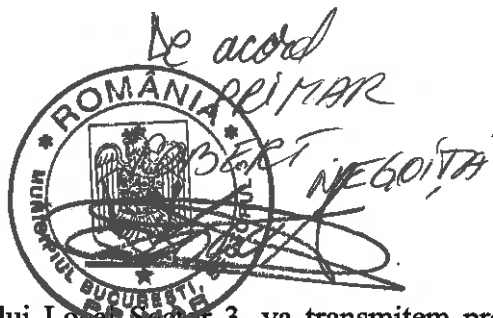 De acord
PRIMAR
BERT NEGOIȚĂ
* ROMÂNIA *
MUNICIPIUL BUCUREȘTI,
lui Local Sector 3, va transmitem